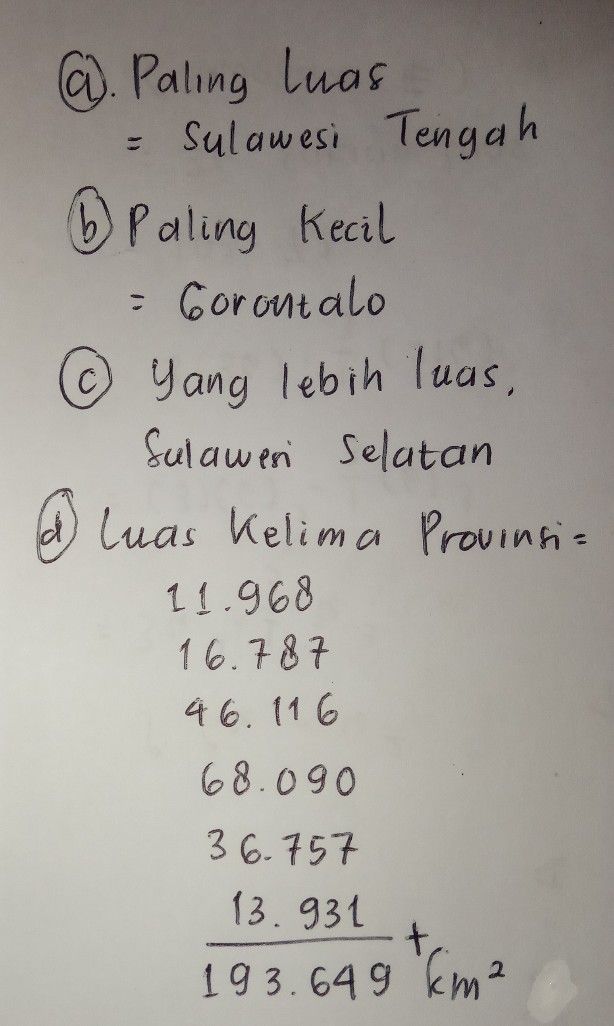 a. Paling Luas
= Sulawesi Tengah
b Paling Kecil
= Gorontalo
c Yang lebih luas,
Sulawesi Selatan
d Luas Kelima Provinsi =
11.968
16.787
46.116
68.090
36.757
13.931 +
193.649 km²